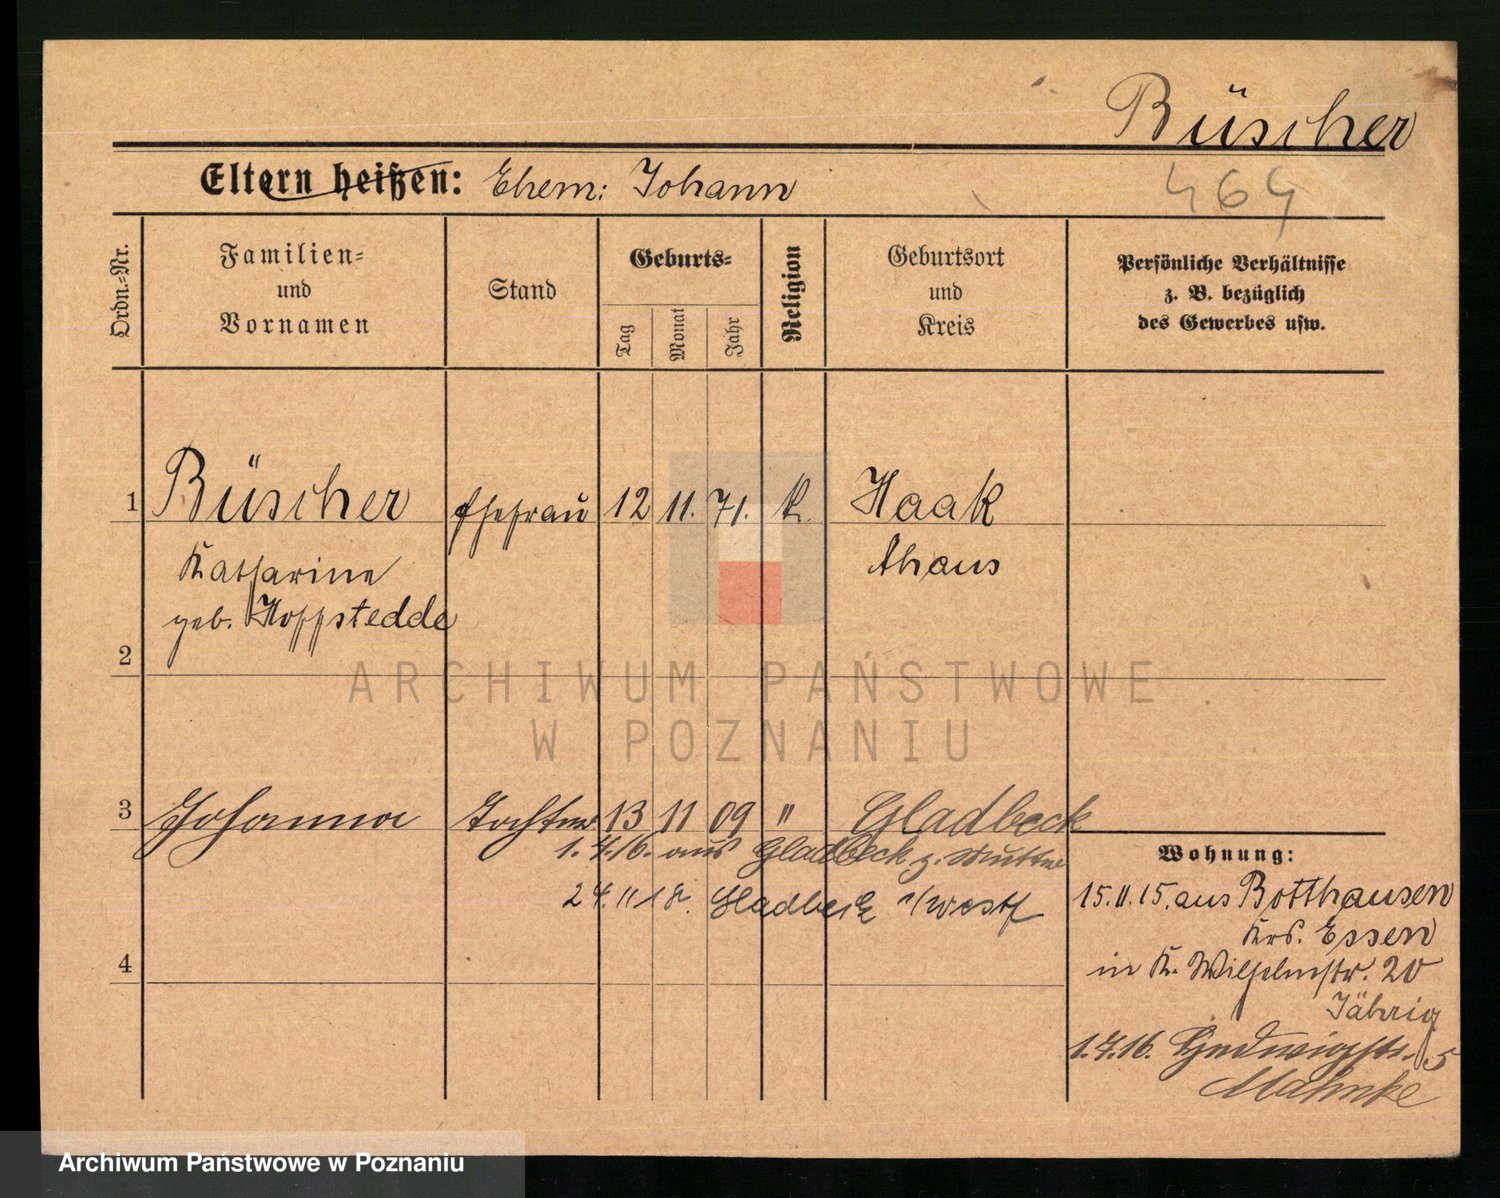 Büscher
Eltern heißen: Ehem: Johann
464
Ordn.-Nr.
Familien-
und
Vornamen
Stand
Geburts-
Tag
Monat
Jahr
Religion
Geburtsort
und
Kreis
Persönliche Verhältnisse
z. B. bezüglich
des Gewerbes usw.
1 Büscher Ehefrau 12 11. 71. k. Haak
Katharine Ahaus
geb. Hoffstedde
2
3 Johanna Tochter 13 11 09 " Gladbeck
1.7.16. aus Gladbeck z. Mutter
24.11 18. Gladbeck i/westf
4
Wohnung:
15.11.15. aus Botthausen
Krs. Essen
in K. Wilhelmstr. 20
Jährig
1.7.16. Hedwigstr. 5
Mahnke
ARCHIWUM PAŃSTWOWE
W POZNANIU
Archiwum Państwowe w Poznaniu